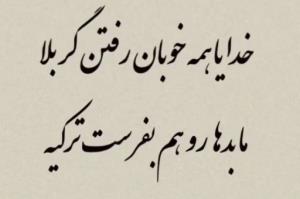 خدایا همه خوبان رفتن کربلا
ما بدها رو هم بفرست ترکیه